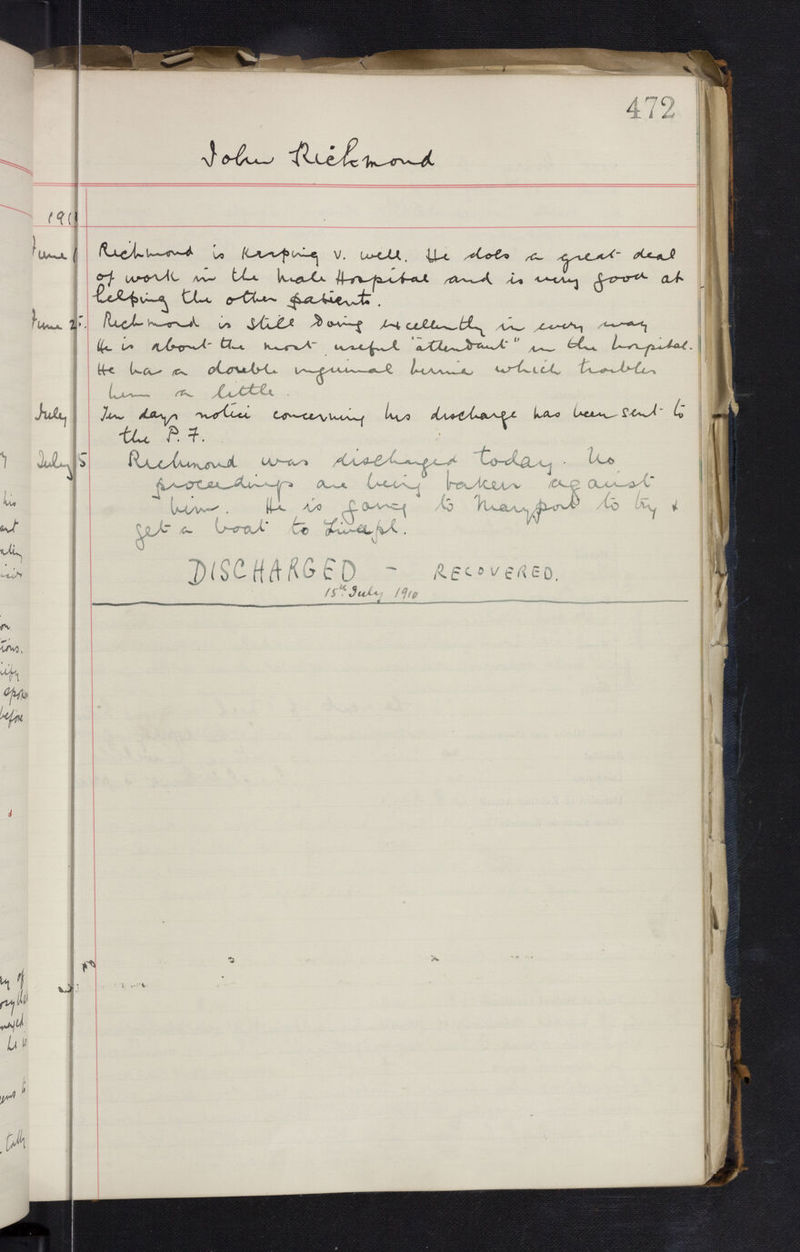 472
John Richmond
191
June 1 Richmond is Keeping v. well. He does a great deal
of work in the Male Hospital and is very good at
helping the other patients.
June 25. Richmond is still doing excellently in every way
He is about the most useful "attendant" in the hospital.
He has a double inguinal hernia which troubles
him a little.
July Ten days notice concerning his discharge has been sent to
the P. F.
July 15 Richmond was discharged today. No
proceedings are being taken against
him. He is going to Maryport to try &
get a boat to Liverpl.
DISCHARGED - RECOVERED.
15th July 1910